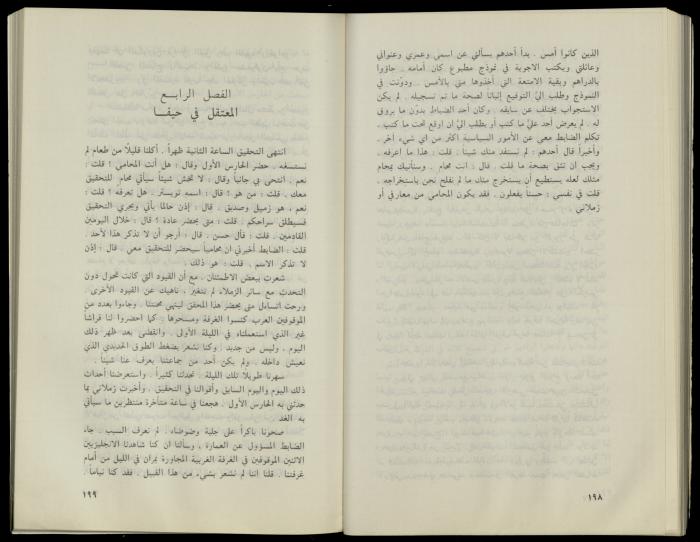 الذين كانوا أمس . بدأ أحدهم يسألني عن اسمي وعمري وعنواني
وعائلتي ويكتب الاجوبة في نموذج مطبوع كان أمامه . جاؤوا
بالدراهم وبقية الامتعة التي أخذوها مني بالأمس . ودوّنت في
النموذج وطلب اليّ التوقيع إثباتاً لصحة ما تم تسجيله . لم يكن
الاستجواب يختلف عن سابقه . وكان أحد الضباط يدوّن ما يروق
له . لم يعرض أحد عليّ ما كتب أو يطلب اليّ ان اوقع تحت ما كتب .
تكلم الضابط معي عن الأمور السياسية اكثر من اي شيء آخر .
وأخيراً قال أحدهم : لم نستفد منك شيئاً . قلت : هذا ما اعرفه .
ويجب ان تثق بصحة ما قلت . قال : انت محام . وسنأتيك بمحام
مثلك لعله يستطيع أن يستخرج منك ما لم نفلح نحن باستخراجه .
قلت في نفسي : حسناً يفعلون . فقد يكون المحامي من معارفي أو
زملائي
١٩٨
الفصل الرابع
المعتقل في حيفا
انتهى التحقيق الساعة الثانية ظهراً . أكلنا قليلاً من طعام لم
نستسغه . حضر الحارس الأول وقال : هل أنت المحامي ؟ قلت :
نعم . انتحى بي جانباً وقال : لا تخش شيئاً سيأتي محام للتحقيق
معك . قلت : من هو ؟ قال : اسمه تويستر . هل تعرفه ؟ قلت :
نعم ، هو زميلي وصديق . قال : إذن حالما يأتي ويجري التحقيق
فسيطلق سراحكم . قلت : متى يحضر عادة ؟ قال : خلال اليومين
القادمين . قلت : فأل حسن . قال : أرجو أن لا تذكر هذا لأحد .
قلت : الضابط أخبرني ان محامياً سيحضر للتحقيق معي . قال : إذن
لا تذكر الاسم . قلت : هو ذلك .
شعرت ببعض الاطمئنان . مع أن القيود التي كانت تحول دون
التحدث مع سائر الزملاء لم تتغير ، ناهيك عن القيود الأخرى .
ورحت اتساءل متى يحضر هذا المحقق لينهي محنتنا . وجاءوا بعدد من
الموقوفين العرب كنسوا الغرفة ومسحوها . كما احضروا لنا فراشاً
غير الذي استعملناه في الليلة الأولى . وانقضى بعد ظهر ذلك
اليوم ، وليس من جديد . وكنا نشعر بضغط الطوق الحديدي الذي
نعيش داخله . ولم يكن أحد من جماعتنا يعرف عنا شيئاً .
سهرنا طويلا تلك الليلة . تحدثنا كثيراً . واستعرضنا أحداث
ذلك اليوم واليوم السابق وأقوالنا في التحقيق . وأخبرت زملائي بما
حدثني به الحارس الأول . هجعنا في ساعة متأخرة منتظرين ما سيأتي
به الغد .
صحونا باكراً على جلبة وضوضاء . لم نعرف السبب . جاء
الضابط المسؤول عن العمارة ، وسألنا ان كنا شاهدنا الانجليزيين
الاثنين الموقوفين في الغرفة الغربية المجاورة يمران في الليل من أمام
غرفتنا . قلنا اننا لم نشعر بشيء من هذا القبيل . فقد كنا نياماً .
١٩٩